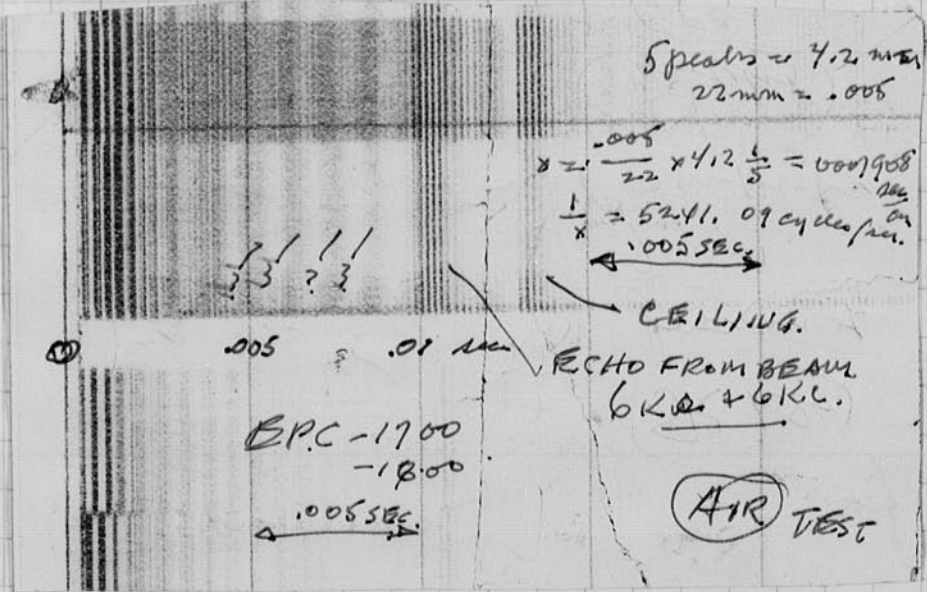 5 peaks = 4.2 mm
22 mm = .005
x = .005/22 x 4.2 1/5 = 0001908
1/x = 5241.09 cycles/sec.
.005 SEC.
? ?
CEILING.
0 .005 .01 sec
ECHO FROM BEAM
6KC. + 6KC.
B.P.C - 1700
- 1800
.005 SEC.
AIR TEST